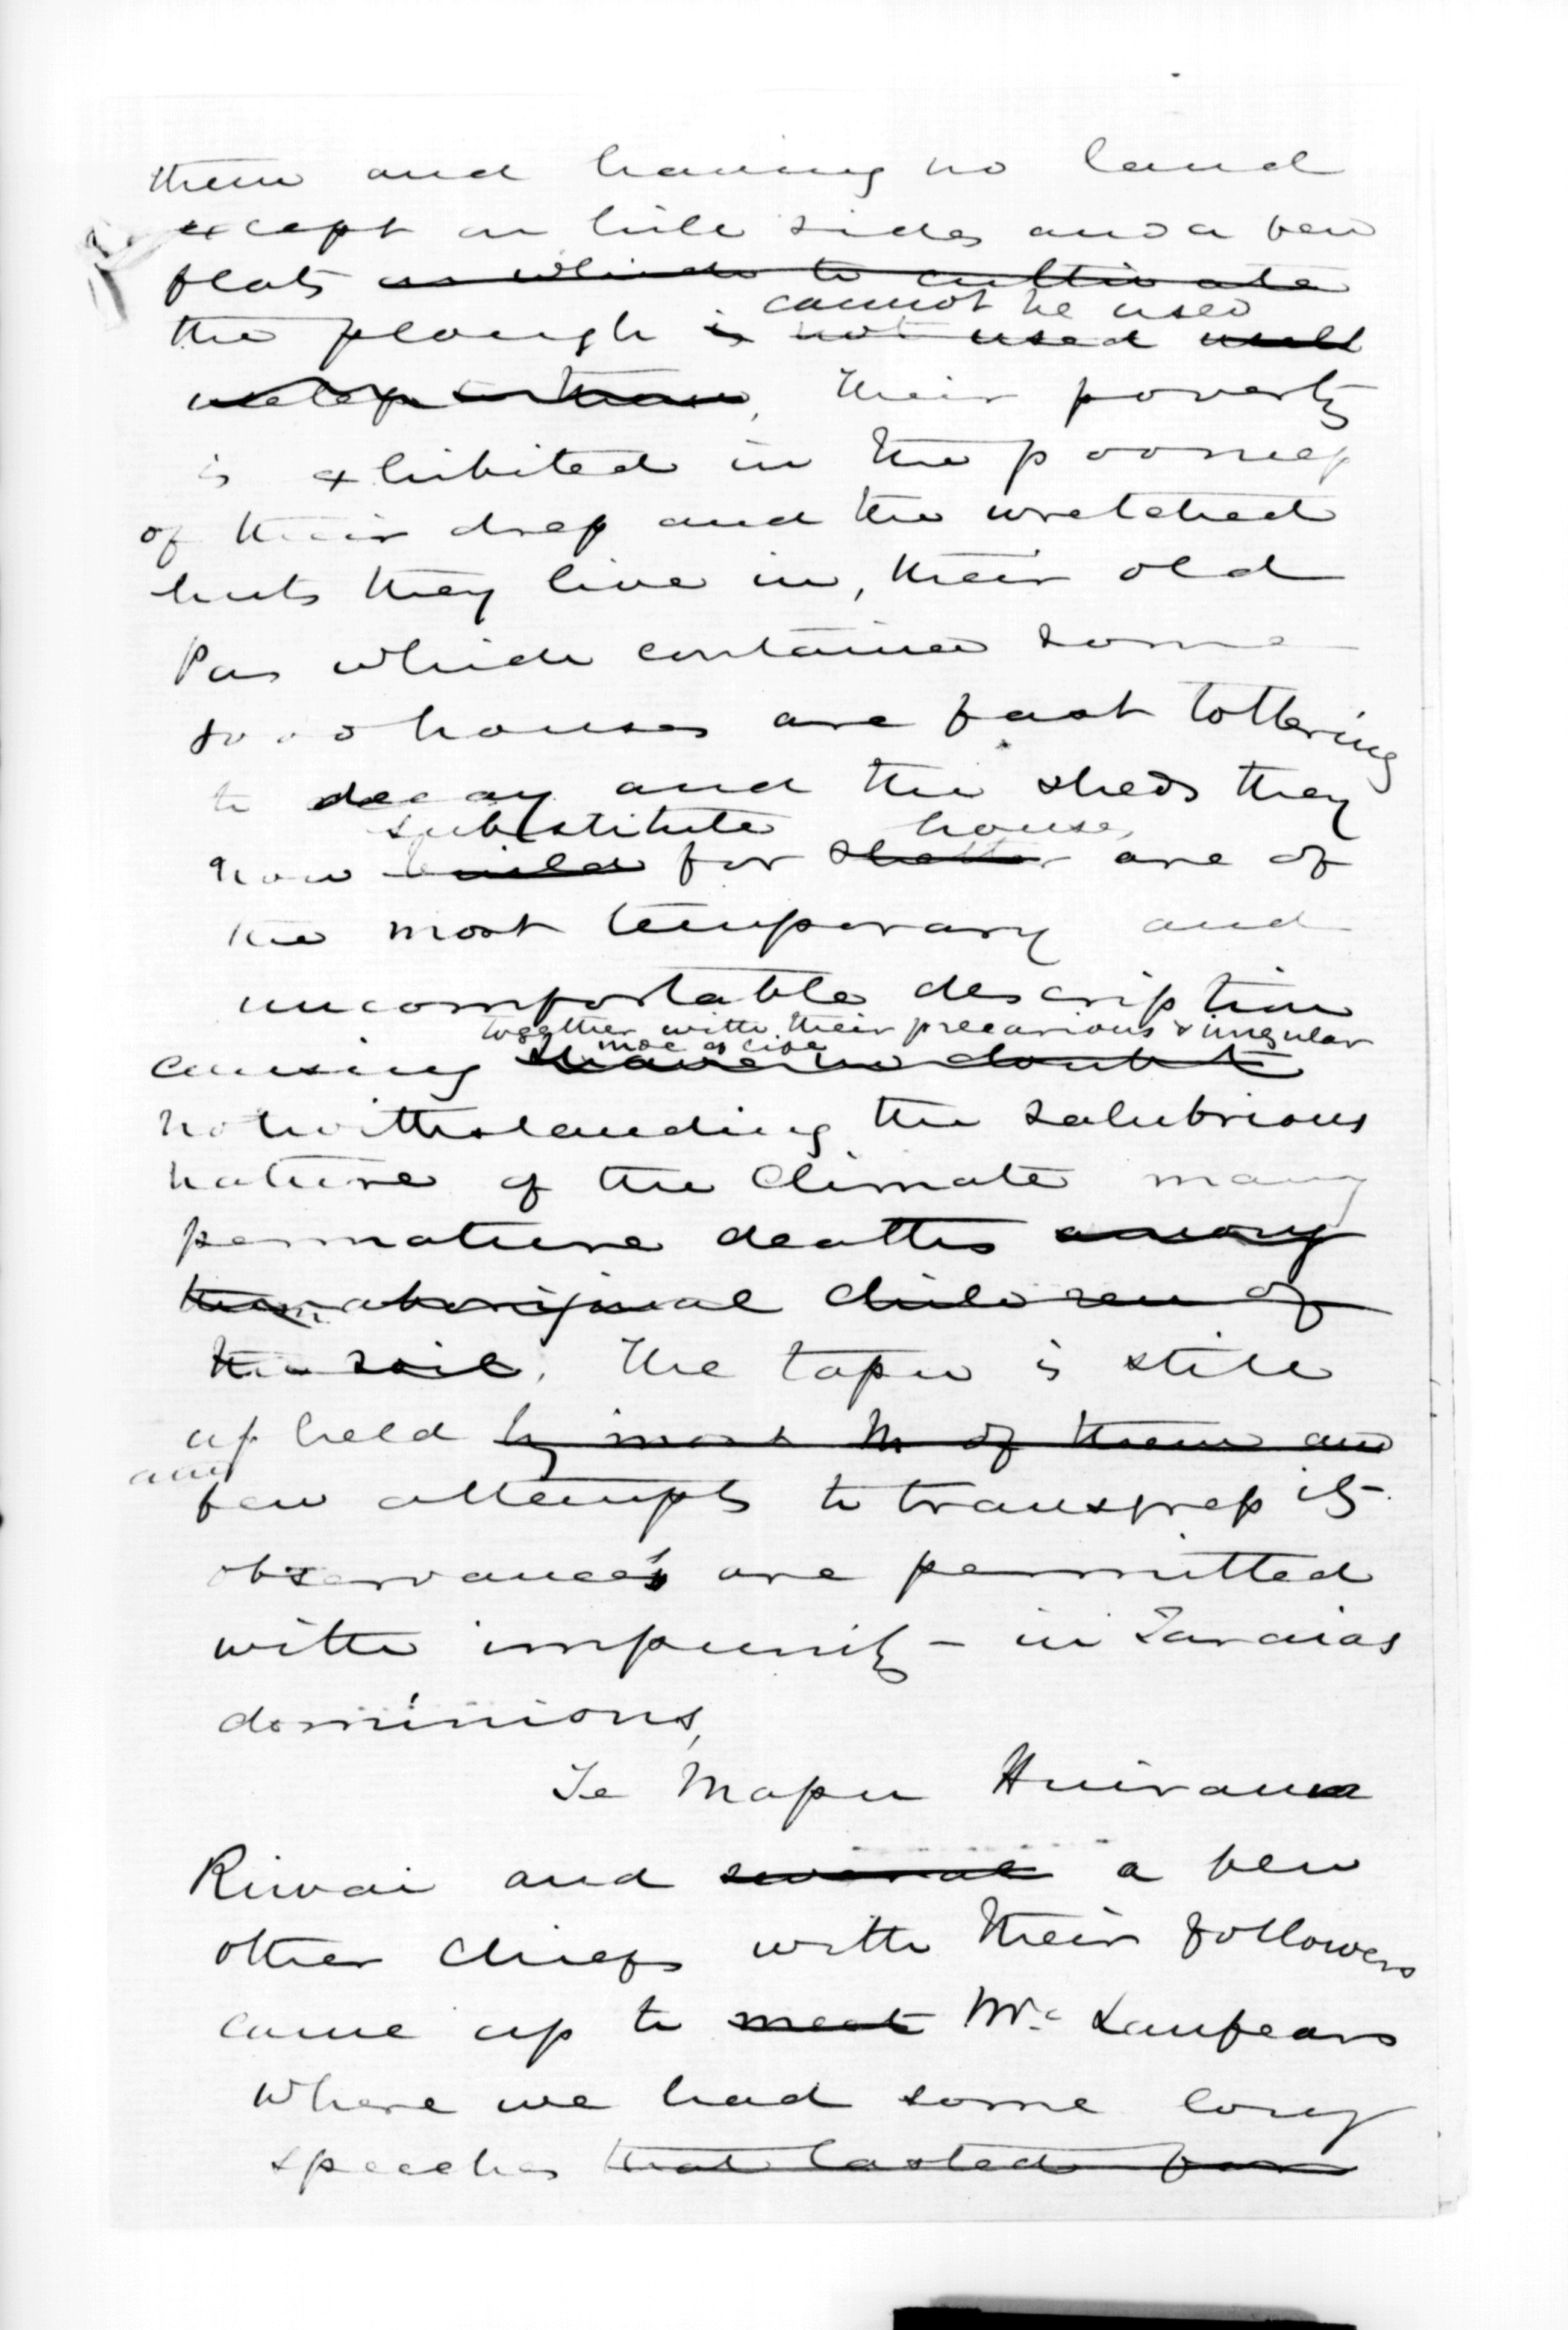 them and having no land
except on hill sides and a few
flats on which to cultivate
cannot be used
the plough is not used
Their poverty
is exhibited in the poorness
of their dress and the wretched
huts they live in, their old
Pas which contained some
good houses are fast tottering
to decay and the sheds they
substitute houses
now build for shelter are of
the most temporary and
uncomfortable description
together with their precarious & irregular
mode of live
causing doubt
notwithstanding the salubrious
nature of the climate many
permature deaths among
aboriginal children of
the soil. The tapu is still
upheld by most of them and
and
few attempts to transgress its
observances are permitted
with impunity - in Taraias
dominions,
Te Mapu Huirama
Riwai and several a few
other chiefs with their followers
came up to meet Mr. Lanfears
where we had some long
speeches that lasted for